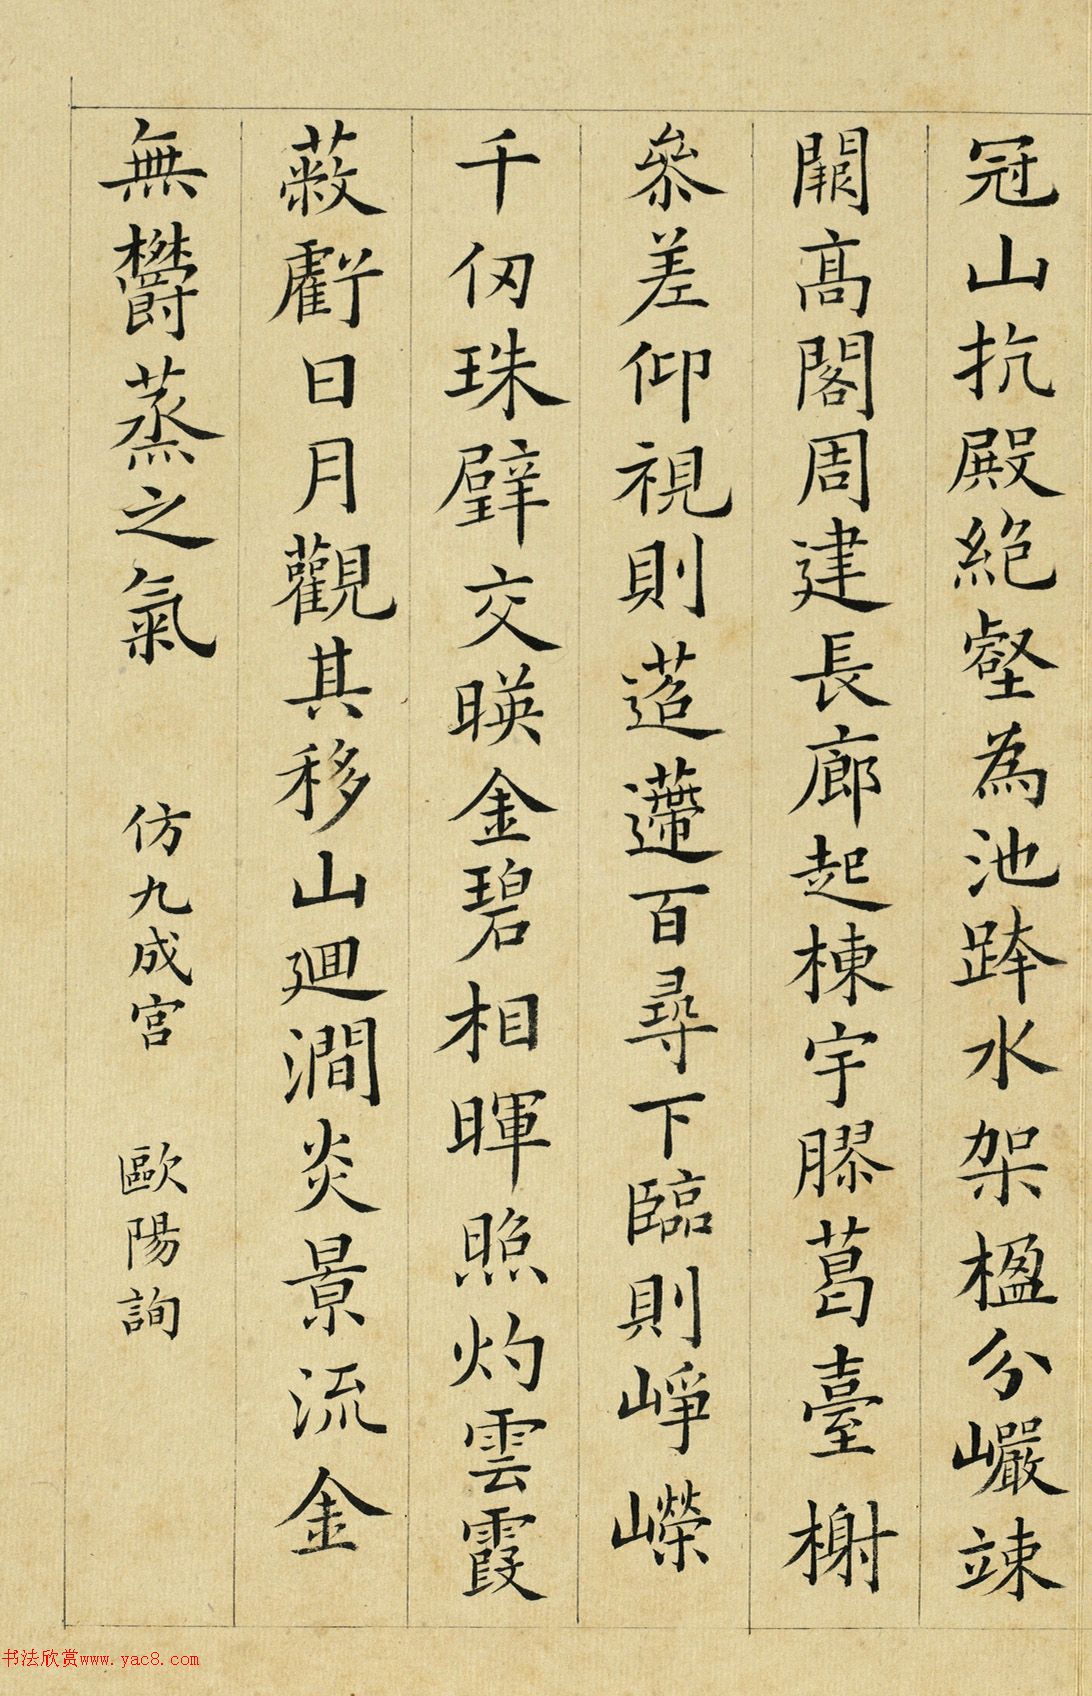 冠山抗殿絕壑為池跨水架楹分巖竦
闕高閣周建長廊起棟宇膠葛臺榭
參差仰視則迢遰百尋下臨則崢嶸
千仞珠壁交暎金碧相暉照灼雲霞
蔽虧日月觀其移山迴澗炎景流金
無鬱蒸之氣 仿九成宮 歐陽詢
书法欣赏www.yac8.com